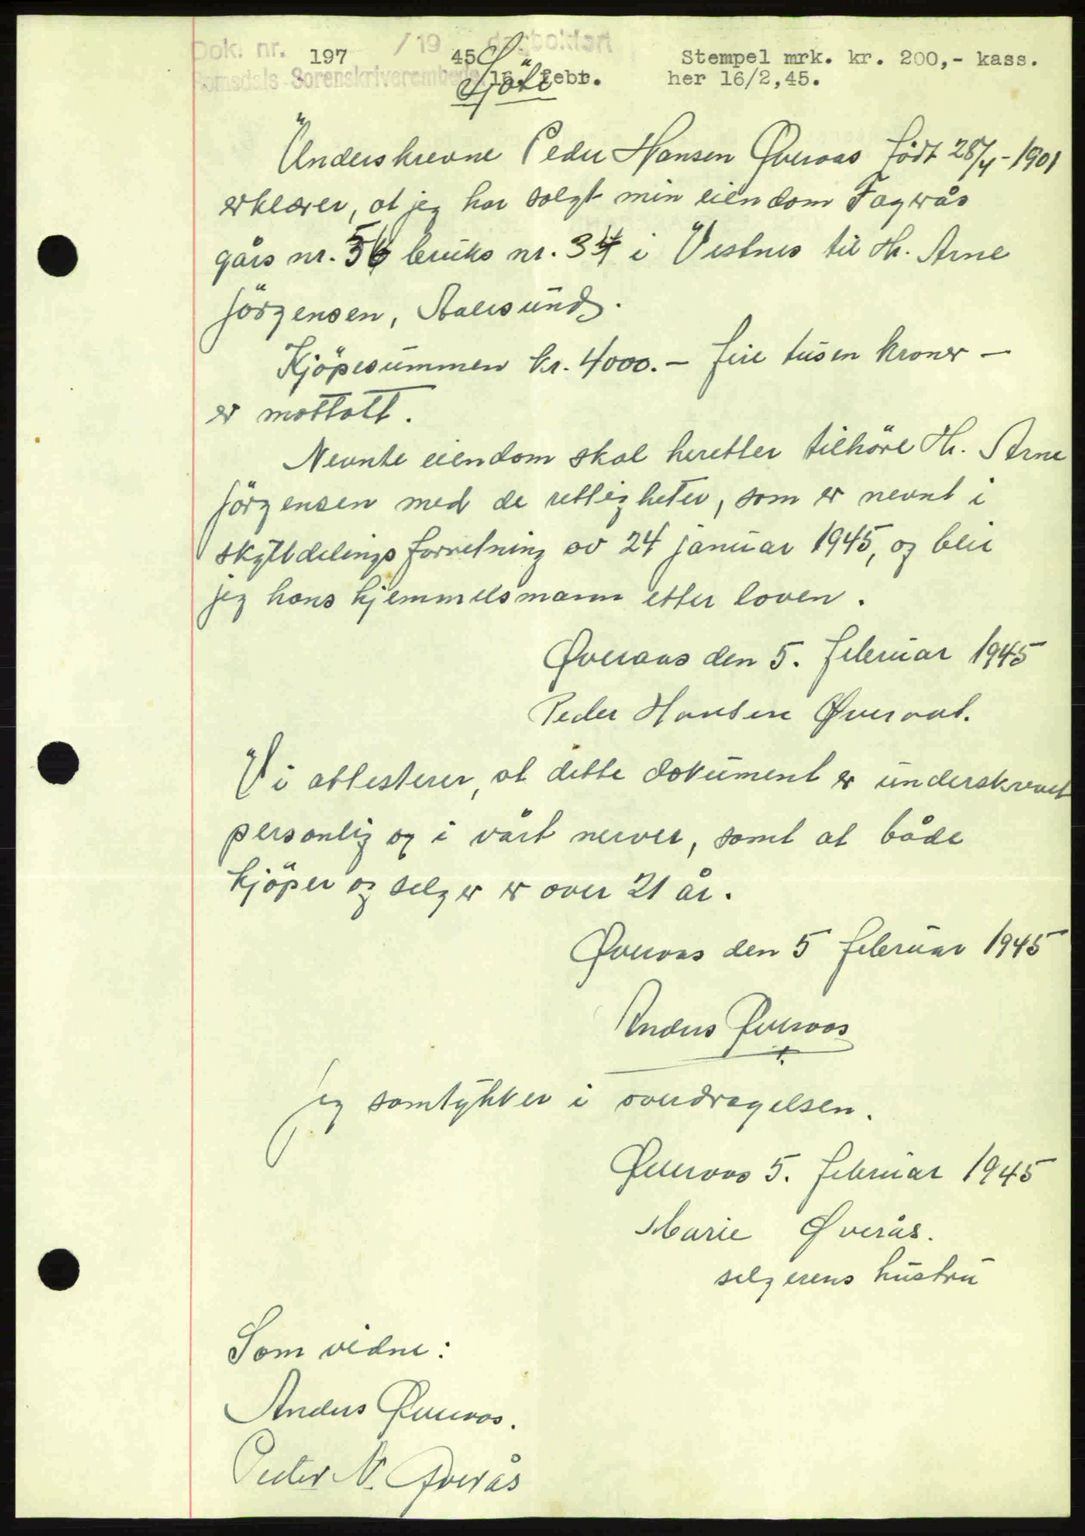 Dok. nr. 197 / 19 45 dagbokført
Romsdals Sorenskriverembede 15. febr.
Stempel mrk. kr. 200,- kass.
her 16/2,45.
Skjöte
Underskrevne Peder Hansen Øveraas født 28/4-1901
erklærer, at jeg har solgt min eiendom Fagerås
gårs nr. 56 bruks nr. 34 i Vestnes til Hr. Arne
Jörgensen, Aalesund.
Kjöpesummen kr. 4000.- fire tusen kroner -
er mottatt.
Nevnte eiendom skal heretter tilhöre Hr. Arne
Jörgensen med de rettigheter, som er nevnt i
skylddelings forretning av 24 januar 1945, og blir
jeg hans hjemmelsmann etter loven.
Øveraas den 5. februar 1945
Peder Hansen Øveraas.
Vi attesterer, at dette dokument er underskrevet
personlig og i vårt nerver, samt at både
kjöper og selger er over 21 år.
Øveraas den 5 februar 1945
Anders Øveraas
Jeg samtykker i overdragelsen.
Øveraas 5. februar 1945
Marie Øverås.
selgerens hustru
Som vidne:
Anders Øveraas.
Peter N. Øverås